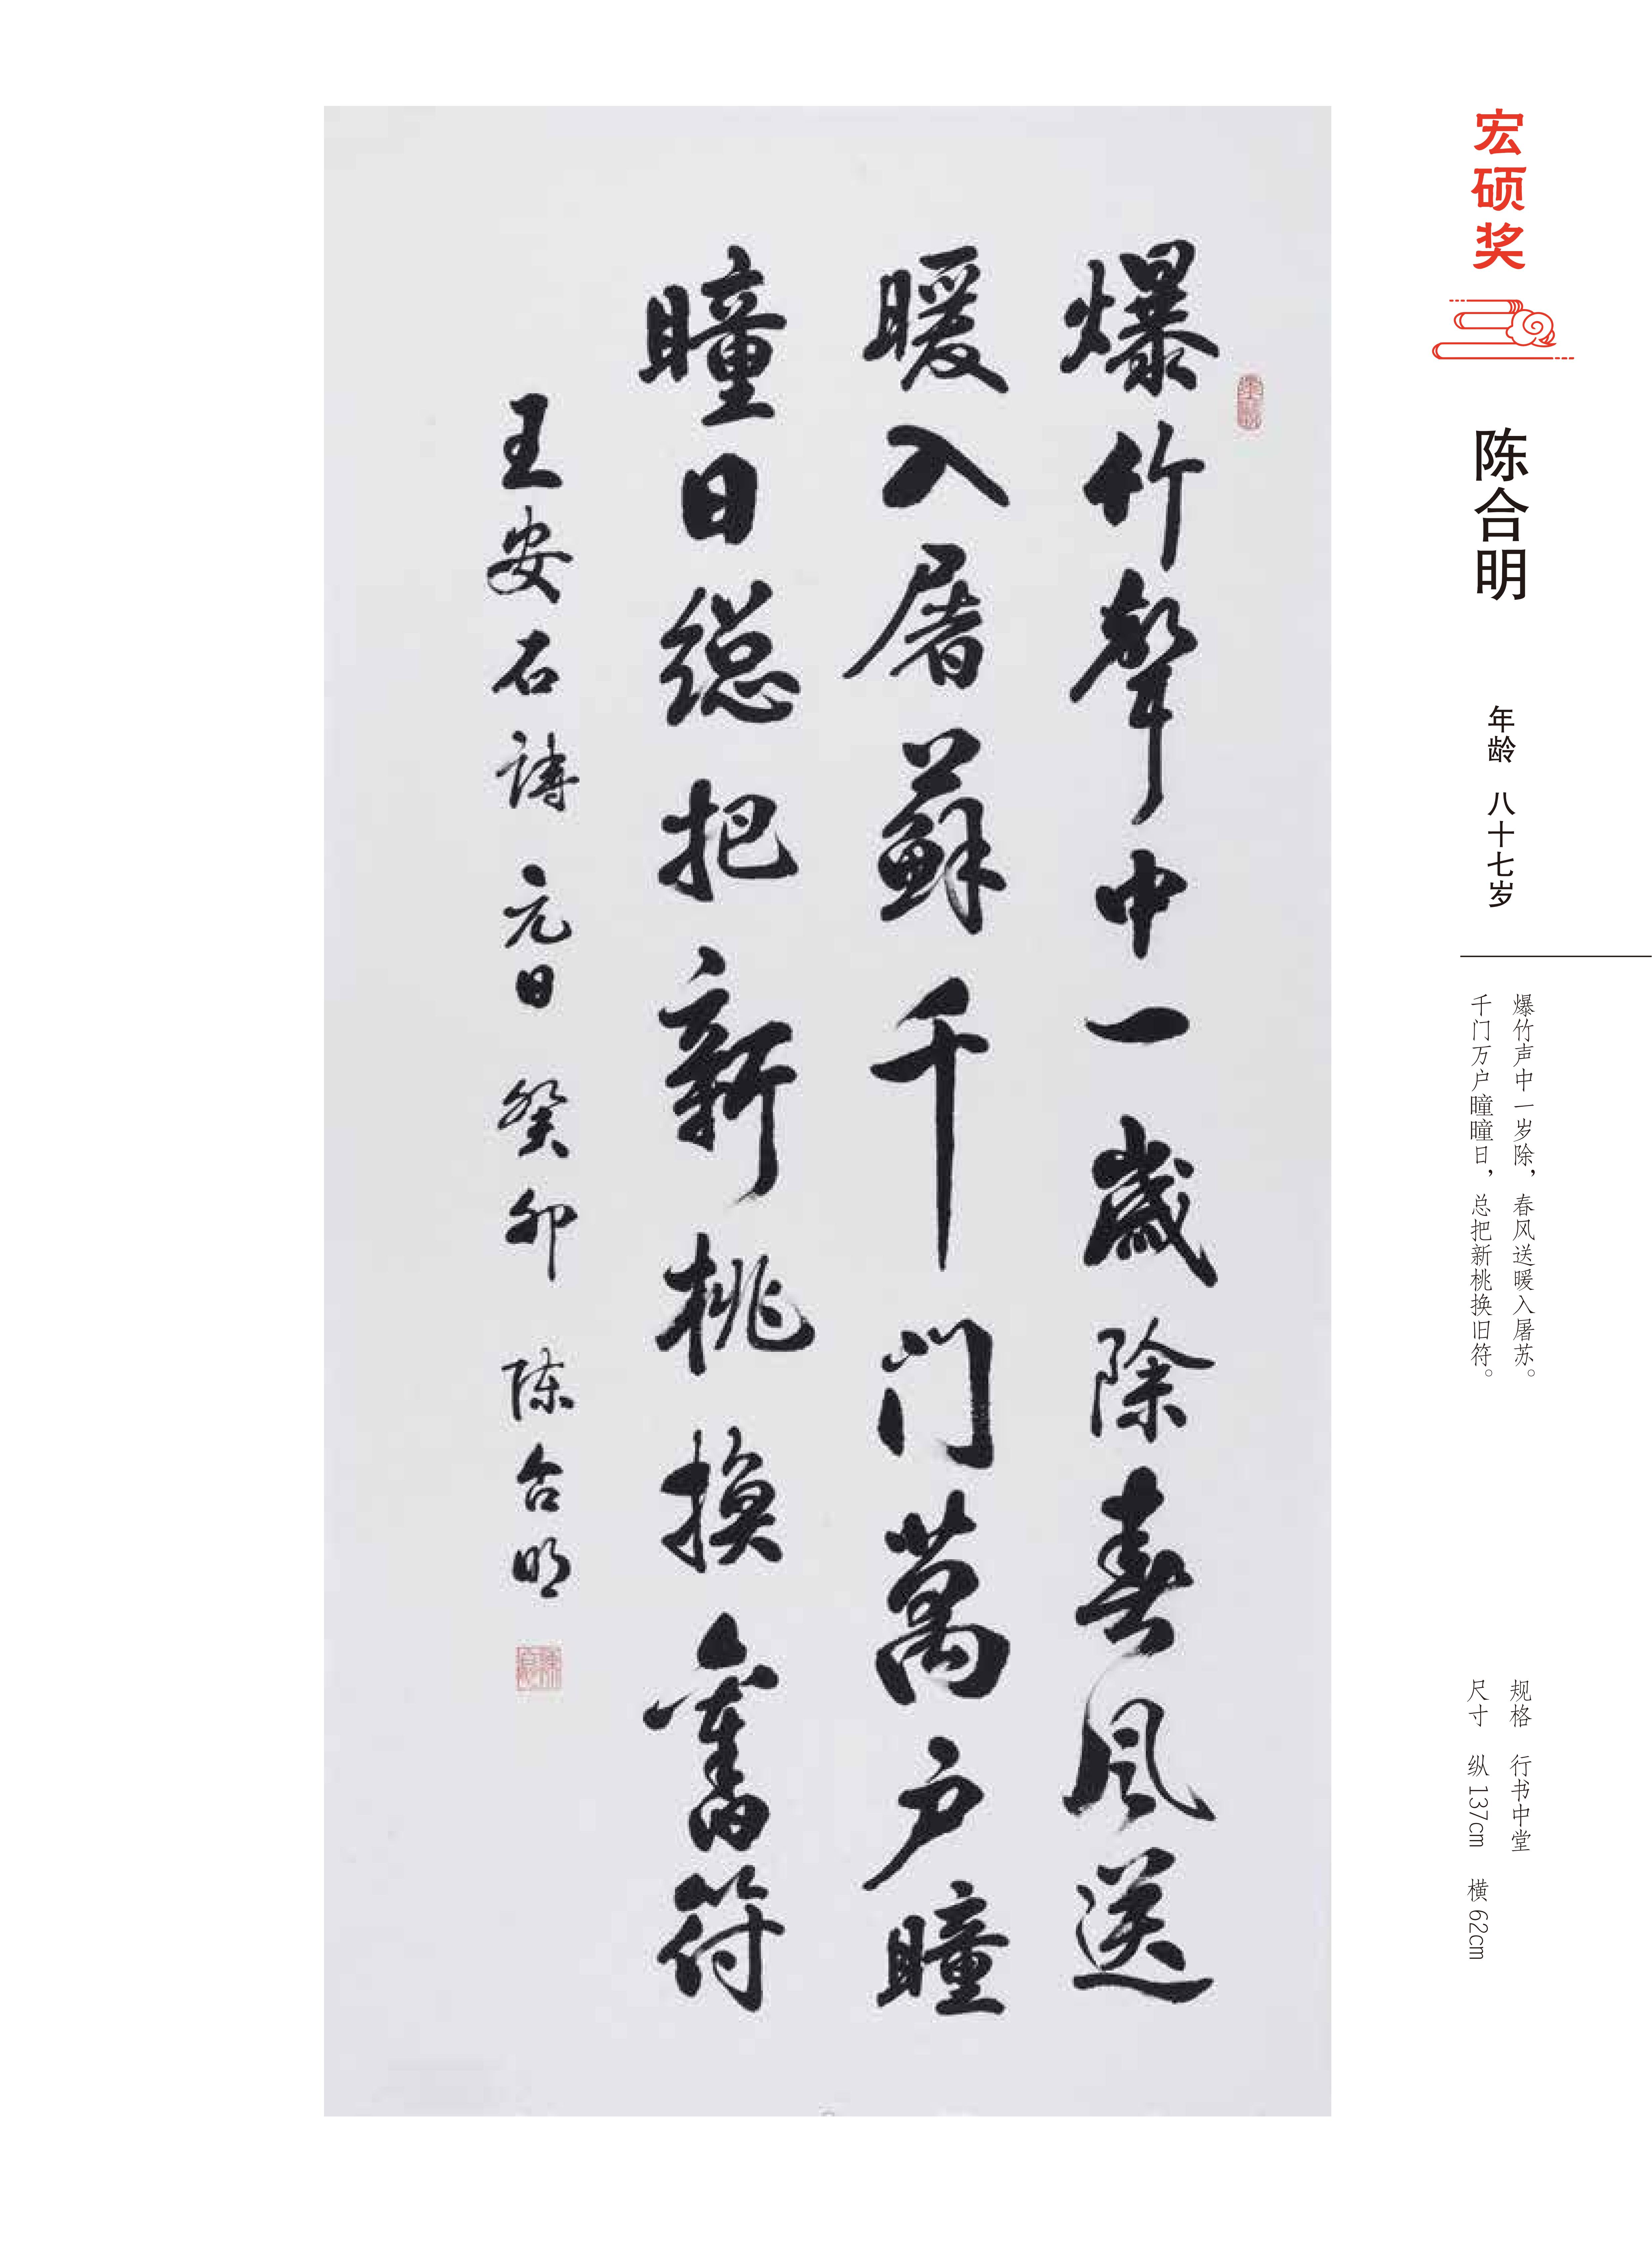 宏硕奖
陈合明
年龄 八十七岁
爆竹声中一岁除，春风送暖入屠苏。
千门万户曈曈日，总把新桃换旧符。
规格 行书中堂
尺寸 纵137cm 横62cm
爆竹聲中一歲除春风送
暖入屠蘇千门萬户曈
曈日總把新桃换舊符
王安石詩元日癸卯陈合明